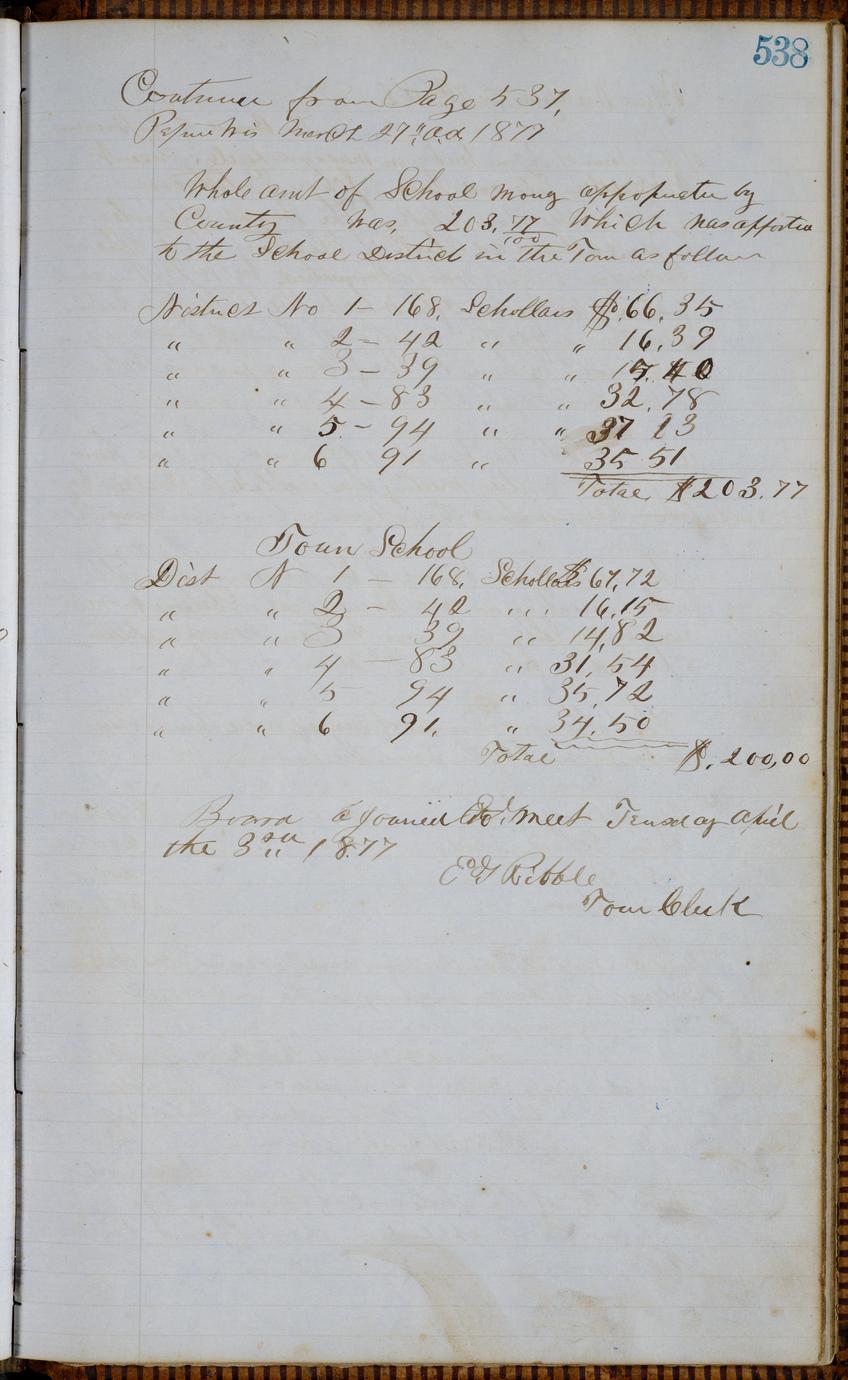 538
Continue from Page 537,
March 27th A.D. 1877
Whole amt of School mony appopriater by
County was, 203. 77/100 Which was apportien
to the School District in the Town as follows
District No 1 - 168. Schollars $.66,35
" " 2 - 42 " " 16,39
" " 3 - 39 " " 15.40
" " 4 - 83 " " 32,78
" " 5 - 94 " " 37 13
" " 6 91 " 35 51
Total $203.77
Town School
Dist N 1 - 168, Schollars $ 67,72
" " 2 - 42 " 16,15
" " 3 39 " 14,82
" " 4 - 83 " 31,54
" " 5 94 " 35,72
" " 6 91, " 34,50
Total $. 200,00
Board ajouried to meet Teusday April
the 3rd 1877
E G Ribble
Town Clerk